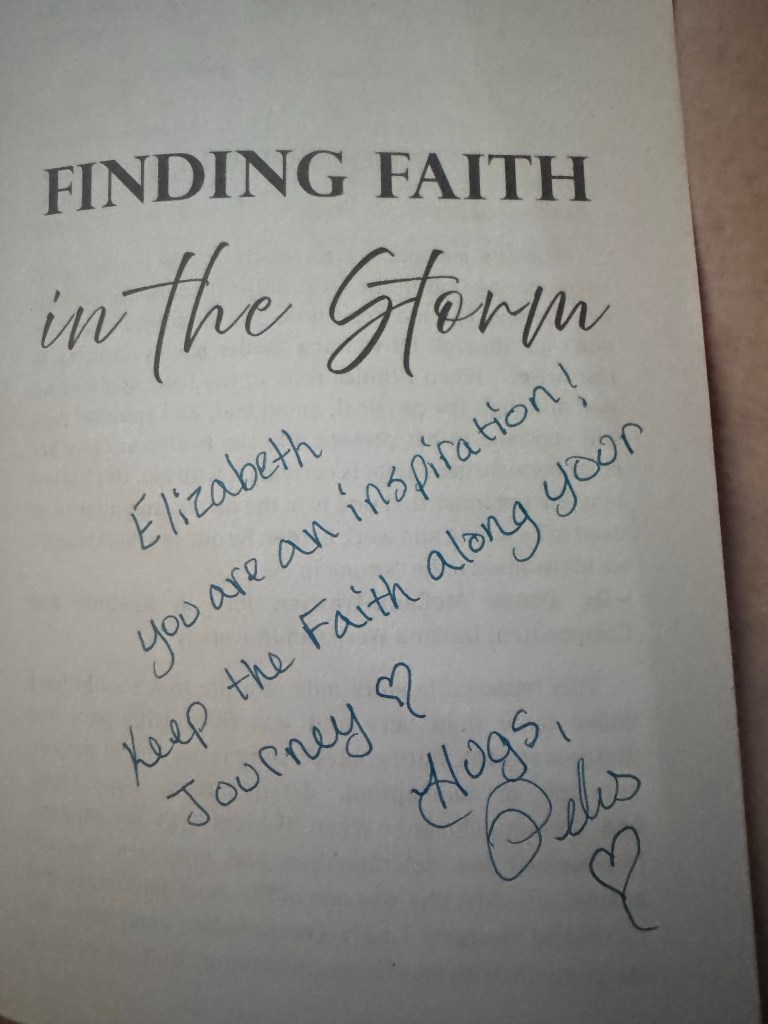 FINDING FAITH
in the Storm
Elizabeth
you are an inspiration!
Keep the Faith along your
Journey ♡
Hugs,
♡